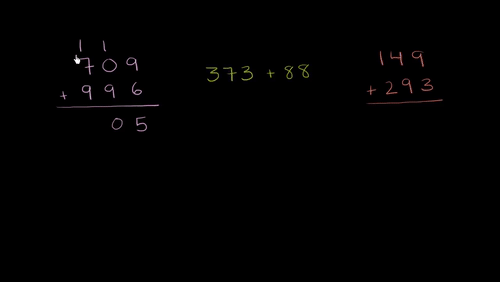 1 1
709
+ 996
05
373 + 88
149
+ 293